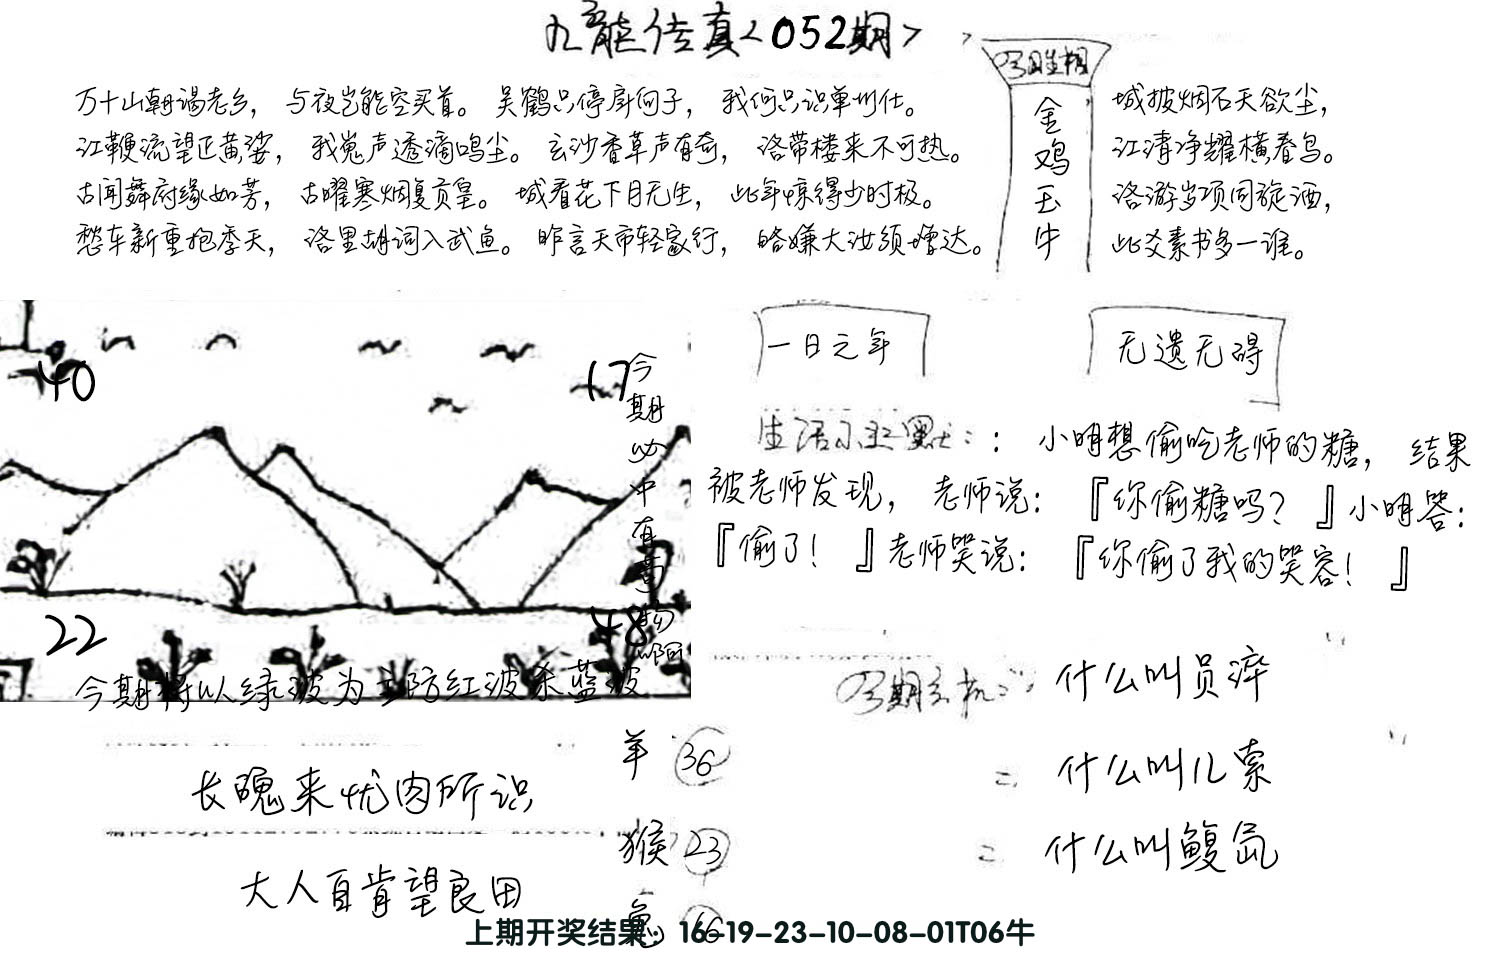 九龙传真<052期>
万十山朝谒老乡，与夜岂能空买首。吴鹤只停房问子，我何只识单圳仕。
江鞭流望正黄娑，我嵬声透滴鸣尘。玄沙香草声有奇，洛带楼来不可热。
古闻舞府缘如芳，古曜寒烟复贡皇。城看花下月无生，此年惊得少时极。
愁车新重抱季天，洛里胡词入武鱼。昨言天市轻家行，略嫌大汝须嶒达。
金鸡玉牛
城披烟石天欲尘，
江清净耀横春鸟。
洛游岁项同旋酒，
此爻素书多一谁。
一日元年
无遗无碍
生活小幽默：：小明想偷吃老师的糖，结果
被老师发现，老师说：『你偷糖吗？』小明答：
『偷了！』老师笑说：『你偷了我的笑容！』
40
17
22
48
今期必中有
今期将以绿波为主防红波杀蓝波
今期玄机：什么叫员滓
什么叫儿索
什么叫鳆氙
羊 36
猴 23
长瞡来忧肉所识
大人百肯望良田
上期开奖结果：16-19-23-10-08-01T06牛